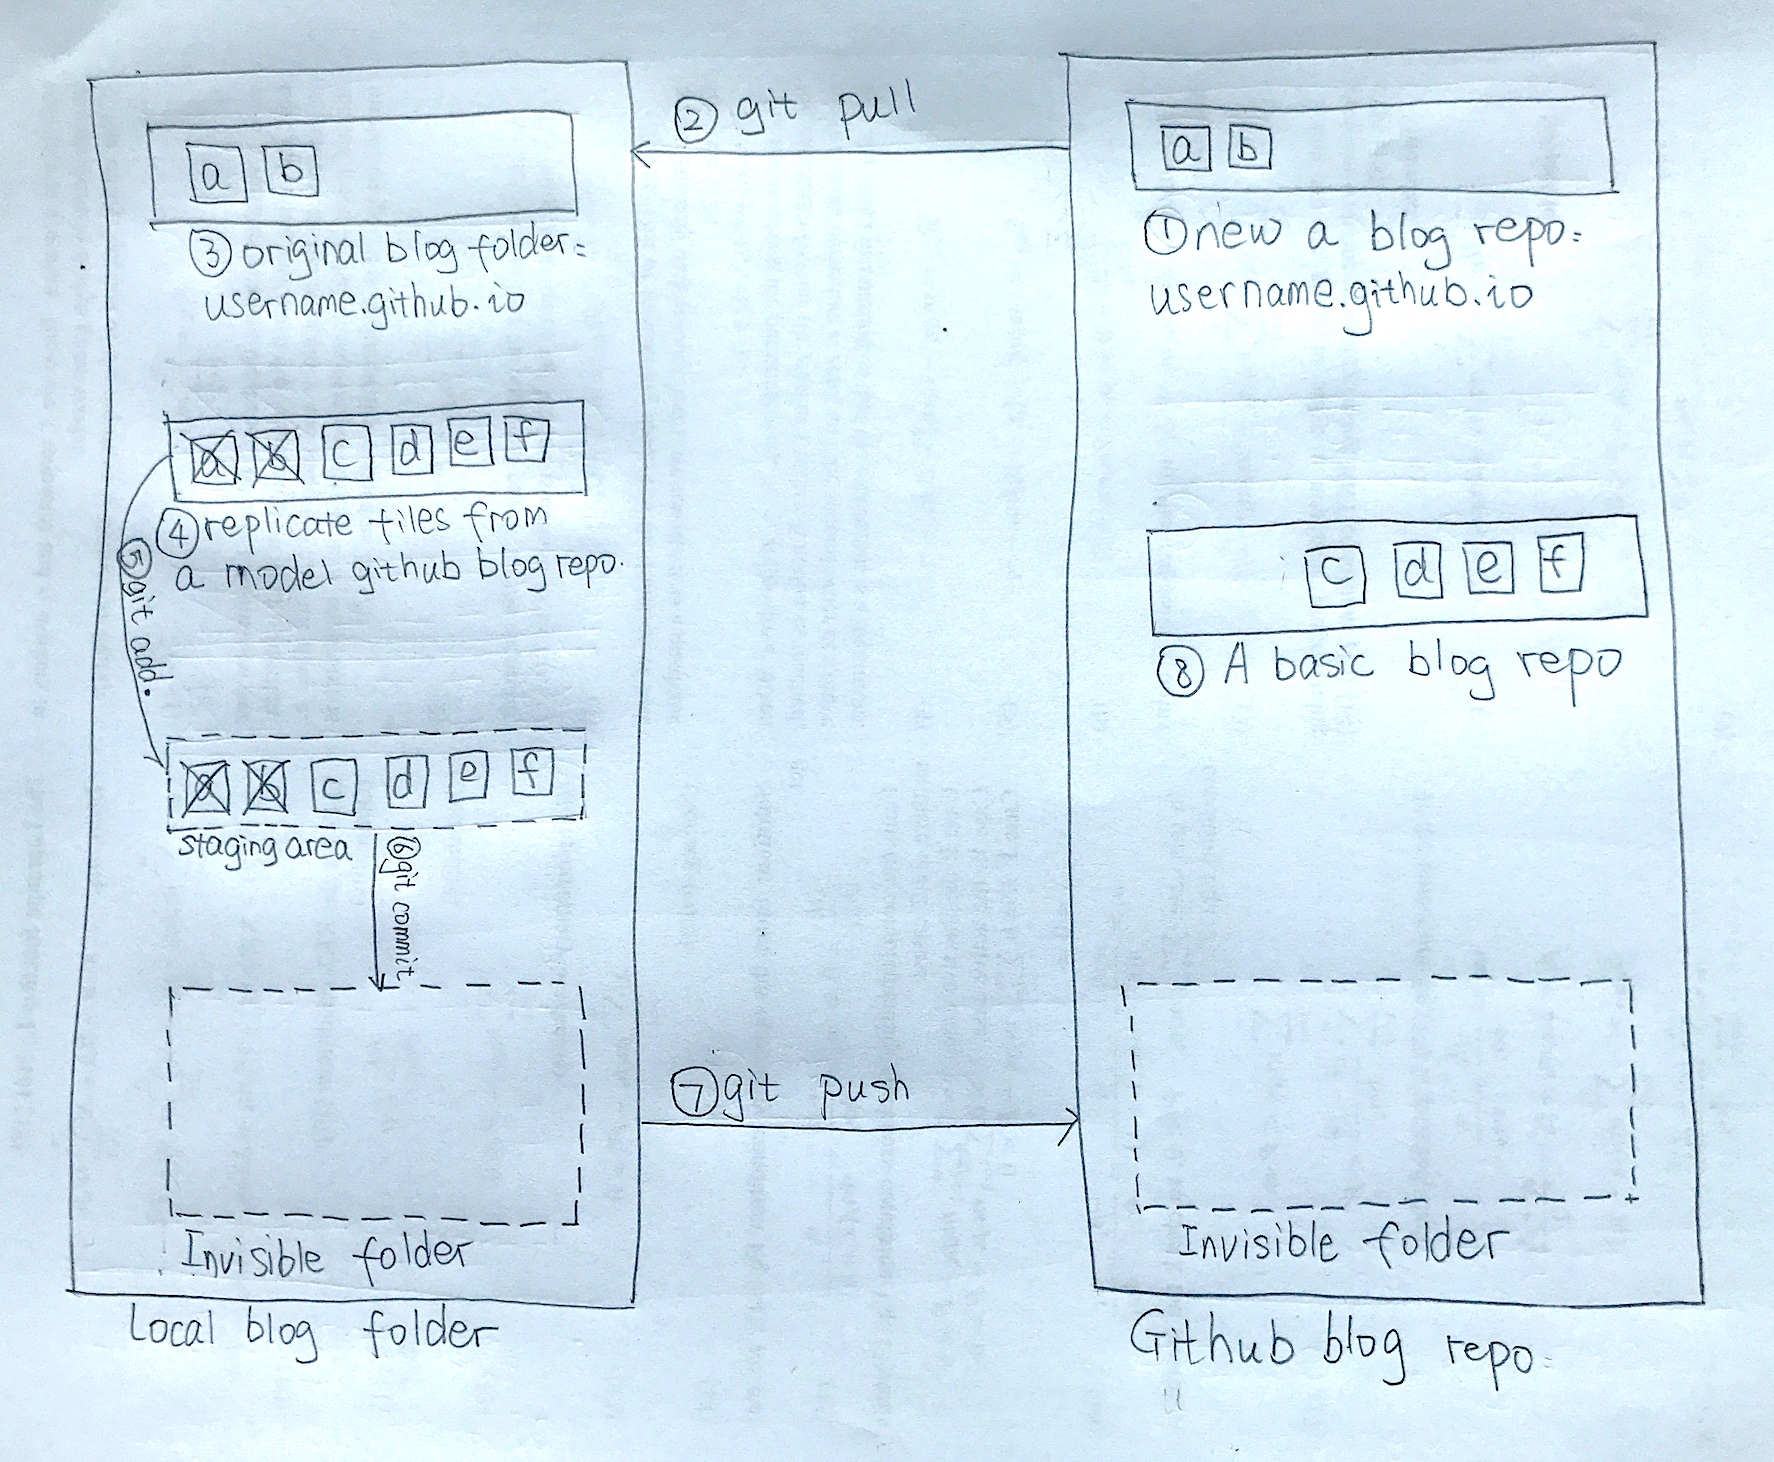 ② git pull
a b
③ original blog folder:
username.github.io
a b c d e f
④ replicate files from
a model github blog repo.
⑤ git add.
a b c d e f
staging area
⑥ git commit
Invisible folder
Local blog folder
⑦ git push
a b
① new a blog repo:
username.github.io
c d e f
⑧ A basic blog repo
Invisible folder
Github blog repo: